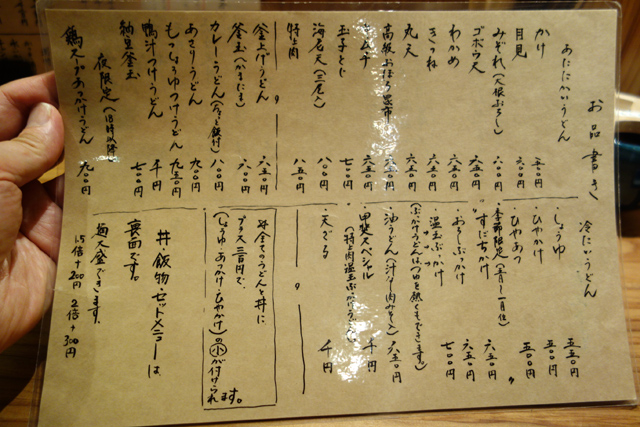 お品書き
あたたかいうどん
かけ 五〇〇円
月見 六〇〇円
みぞれ(大根おろし) 六〇〇円
ゴボウ天 六五〇円
わかめ 六五〇円
きつね 六五〇円
丸天 六五〇円
高級おぼろ昆布 六五〇円
キムチ 六五〇円
玉子とじ 七〇〇円
海老天(三尾入) 八〇〇円
特上肉 八五〇円
釜上げうどん 六五〇円
釜玉(かまたま) 七〇〇円
カレーうどん 八〇〇円
あさりうどん 九〇〇円
もつしょうゆつけうどん 九五〇円
鴨汁つけうどん 千円
納豆釜玉 七〇〇円
夜限定(18時以降)
鶏天ぶあっかけうどん 九〇〇円
冷たいうどん
・しょうゆ 五五〇円
・ひやかけ 五五〇円
・ひやあつ 五五〇円
・季節限定
すだちかけ 〃
・おろしぶっかけ 六五〇円
・温玉ぶっかけ 七〇〇円
(ぶっかけうどんはつゆを熱くもできます。)
・油うどん(汁なし肉みそ入) 六五〇円
・甲斐スペシャル 千円
(特上肉温玉ぶっかけうどん)
・天ざる 千円
丼・全てのうどんと丼に
プラス二百円で
(しょうゆ・あつかけ・ひやかけ)の小が付けられます。
丼・飯物・セットメニューは
裏面です。
麺大盛できます。
1.5倍+200円 2倍+300円